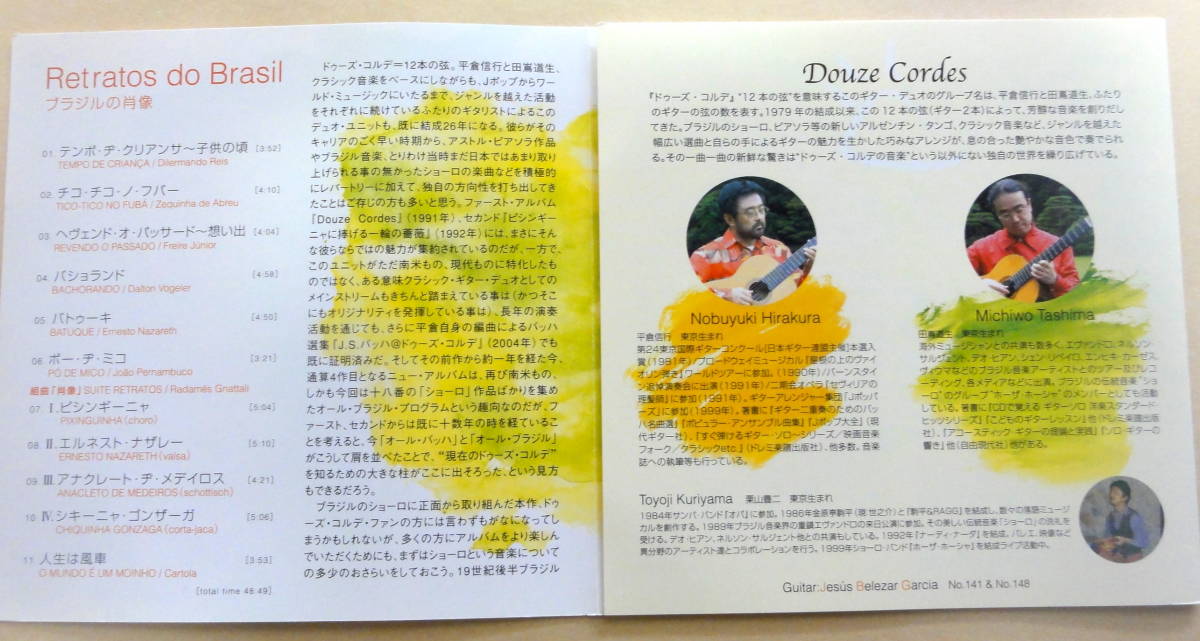 Retratos do Brasil
ブラジルの肖像
01. テンポ・ヂ・クリアンサ〜子供の頃 [3:52]
TEMPO DE CRIANÇA / Dilermando Reis
02. チコ・チコ・ノ・フバー [4:10]
TICO-TICO NO FUBÁ / Zequinha de Abreu
03. ヘヴェンド・オ・パッサード〜想い出 [4:04]
REVENDO O PASSADO / Freire Júnior
04. バショランド [4:58]
BACHORANDO / Dalton Vogeler
05. バトゥーキ [4:50]
BATUQUE / Ernesto Nazareth
06. ポー・ヂ・ミコ [3:21]
PÓ DE MICO / João Pernambuco
組曲「肖像」SUITE RETRATOS / Radamés Gnattali
07. Ⅰ. ピシンギーニャ [5:04]
PIXINGUINHA (choro)
08. Ⅱ. エルネスト・ナザレー [5:10]
ERNESTO NAZARETH (valsa)
09. Ⅲ. アナクレート・ヂ・メデイロス [4:21]
ANACLETO DE MEDEIROS (schottisch)
10. Ⅳ. シキーニャ・ゴンザーガ [5:06]
CHIQUINHA GONZAGA (corta-jaca)
11. 人生は風車 [3:53]
O MUNDO É UM MOINHO / Cartola
[total time 48:49]
ドゥーズ・コルデ＝12本の弦。平倉信行と田嶌道生、
クラシック音楽をベースにしながらも、Jポップからワー
ルド・ミュージックにいたるまで、ジャンルを越えた活動
をそれぞれに続けているふたりのギタリストによるこの
デュオ・ユニットも、既に結成26年になる。彼らがその
キャリアのごく早い時期から、アストル・ピアソラ作品
やブラジル音楽、とりわけ当時まだ日本ではあまり取り
上げられる事の無かったショーロの楽曲などを積極的
にレパートリーに加えて、独自の方向性を打ち出してき
たことはご存じの方も多いと思う。ファースト・アルバム
『Douze Cordes』（1991年）、セカンド『ピシンギー
ニャに捧げる一輪の薔薇』（1992年）には、まさにそん
な彼らならではの魅力が集約されているのだが、一方で、
このユニットがただ南米もの、現代ものに特化したも
のではなく、ある意味クラシック・ギター・デュオとしての
メインストリームもきちんと踏まえている事は（かつそこ
にもオリジナリティを発揮している事は）、長年の演奏
活動を通じても、さらに平倉自身の編曲によるバッハ
選集『J.S.バッハ@ドゥーズ・コルデ』（2004年）でも
既に証明済みだ。そしてその前作から約一年を経た今、
通算4作目となるニュー・アルバムは、再び南米もの、
しかも今回は十八番の「ショーロ」作品ばかりを集め
たオール・ブラジル・プログラムという趣向なのだが、フ
ァースト、セカンドからは既に十数年の時を経ているこ
とを考えると、今「オール・バッハ」と「オール・ブラジル」
がこうして肩を並べたことで、“現在のドゥーズ・コルデ”
を知るための大きな柱がここに出そろった、という見方
もできるだろう。
ブラジルのショーロに正面から取り組んだ本作、ドゥ
ーズ・コルデ・ファンの方には言わずもがなになってし
まうかもしれないが、多くの方にアルバムをより楽しん
でいただくためにも、まずはショーロという音楽について
の多少のおさらいをしておこう。19世紀後半ブラジル
Douze Cordes
『ドゥーズ・コルデ』“12本の弦”を意味するこのギター・デュオのグループ名は、平倉信行と田嶌道生、ふたり
のギターの弦の数を表す。1979年の結成以来、この12本の弦（ギター2本）によって、芳醇な音楽を創りだし
てきた。ブラジルのショーロ、ピアソラ等の新しいアルゼンチン・タンゴ、クラシック音楽など、ジャンルを越えた
幅広い選曲と自らの手によるギターの魅力を生かした巧みなアレンジが、息の合った艶やかな音色で奏でられ
る。その一曲一曲の新鮮な驚きは“ドゥーズ・コルデの音楽”という以外にない独自の世界を繰り広げている。
Nobuyuki Hirakura
平倉信行 東京生まれ
第24東京国際ギターコンクール[日本ギター連盟主催]本選入
賞（1981年）/ブロードウェイミュージカル『屋根の上のヴァイ
オリン弾き』ワールドツアーに参加。（1990年）/バーンスタイ
ン追悼演奏会に出演（1991年）/二期会オペラ『セヴィリアの
理髪師』に参加（1991年）。ギターアレンジャー集団『Jポッパ
ーズ』に参加（1999年）。著書に『ギター二重奏のためのバッ
ハ名曲選』『ポピュラー・アンサンブル曲集』『Jポップ大全』（現
代ギター社）、『すぐ弾けるギター・ソロ〜シリーズ／映画音楽
フォーク／クラシックetc.』（ドレミ楽譜出版社）、他多数。音楽
誌への執筆等も行っている。
Michiwo Tashima
田嶌道生 東京生まれ
海外ミュージシャンとの共演も数多く、エヴァンドロ、ネルソン・
サルジェント、デオ・ヒアン、シェン・リベイロ、エンヒキ・カーゼス、
ヴィウマなどのブラジル音楽アーティストとのツアー及びレコ
ーディング、各メディアなどに出演。ブラジルの伝統音楽“ショ
ーロ”のグループ“ホーザ・ホーシャ”のメンバーとしても活動
している。著書に『CDで覚える ギターソロ 洋楽スタンダード・
ヒッツシリーズ』『こどものギターレッスン』他（ドレミ楽譜出版
社）、『アコースティック・ギターの理論と実践』『ソロ・ギターの
響き』他（自由現代社）他がある。
Toyoji Kuriyama 栗山豊二 東京生まれ
1984年サンバ・バンド『オパ』に参加。1986年金原亭駒平（現 世之介）と『駒平&RAGG』を結成し、数々の落語ミュージ
カルを創作する。1989年ブラジル音楽界の重鎮エヴァンドロの来日公演に参加。その美しい伝統音楽「ショーロ」の洗礼を
受ける。デオ・ヒアン、ネルソン・サルジェント他との共演もしている。1992年『ナーディ・ナーダ』を結成。バレエ、映像など
異分野のアーティスト達とコラボレーションを行う。1999年ショーロ・バンド『ホーザ・ホーシャ』を結成ライブ活動中。
Guitar:Jesús Belezar Garcia No.141 & No.148